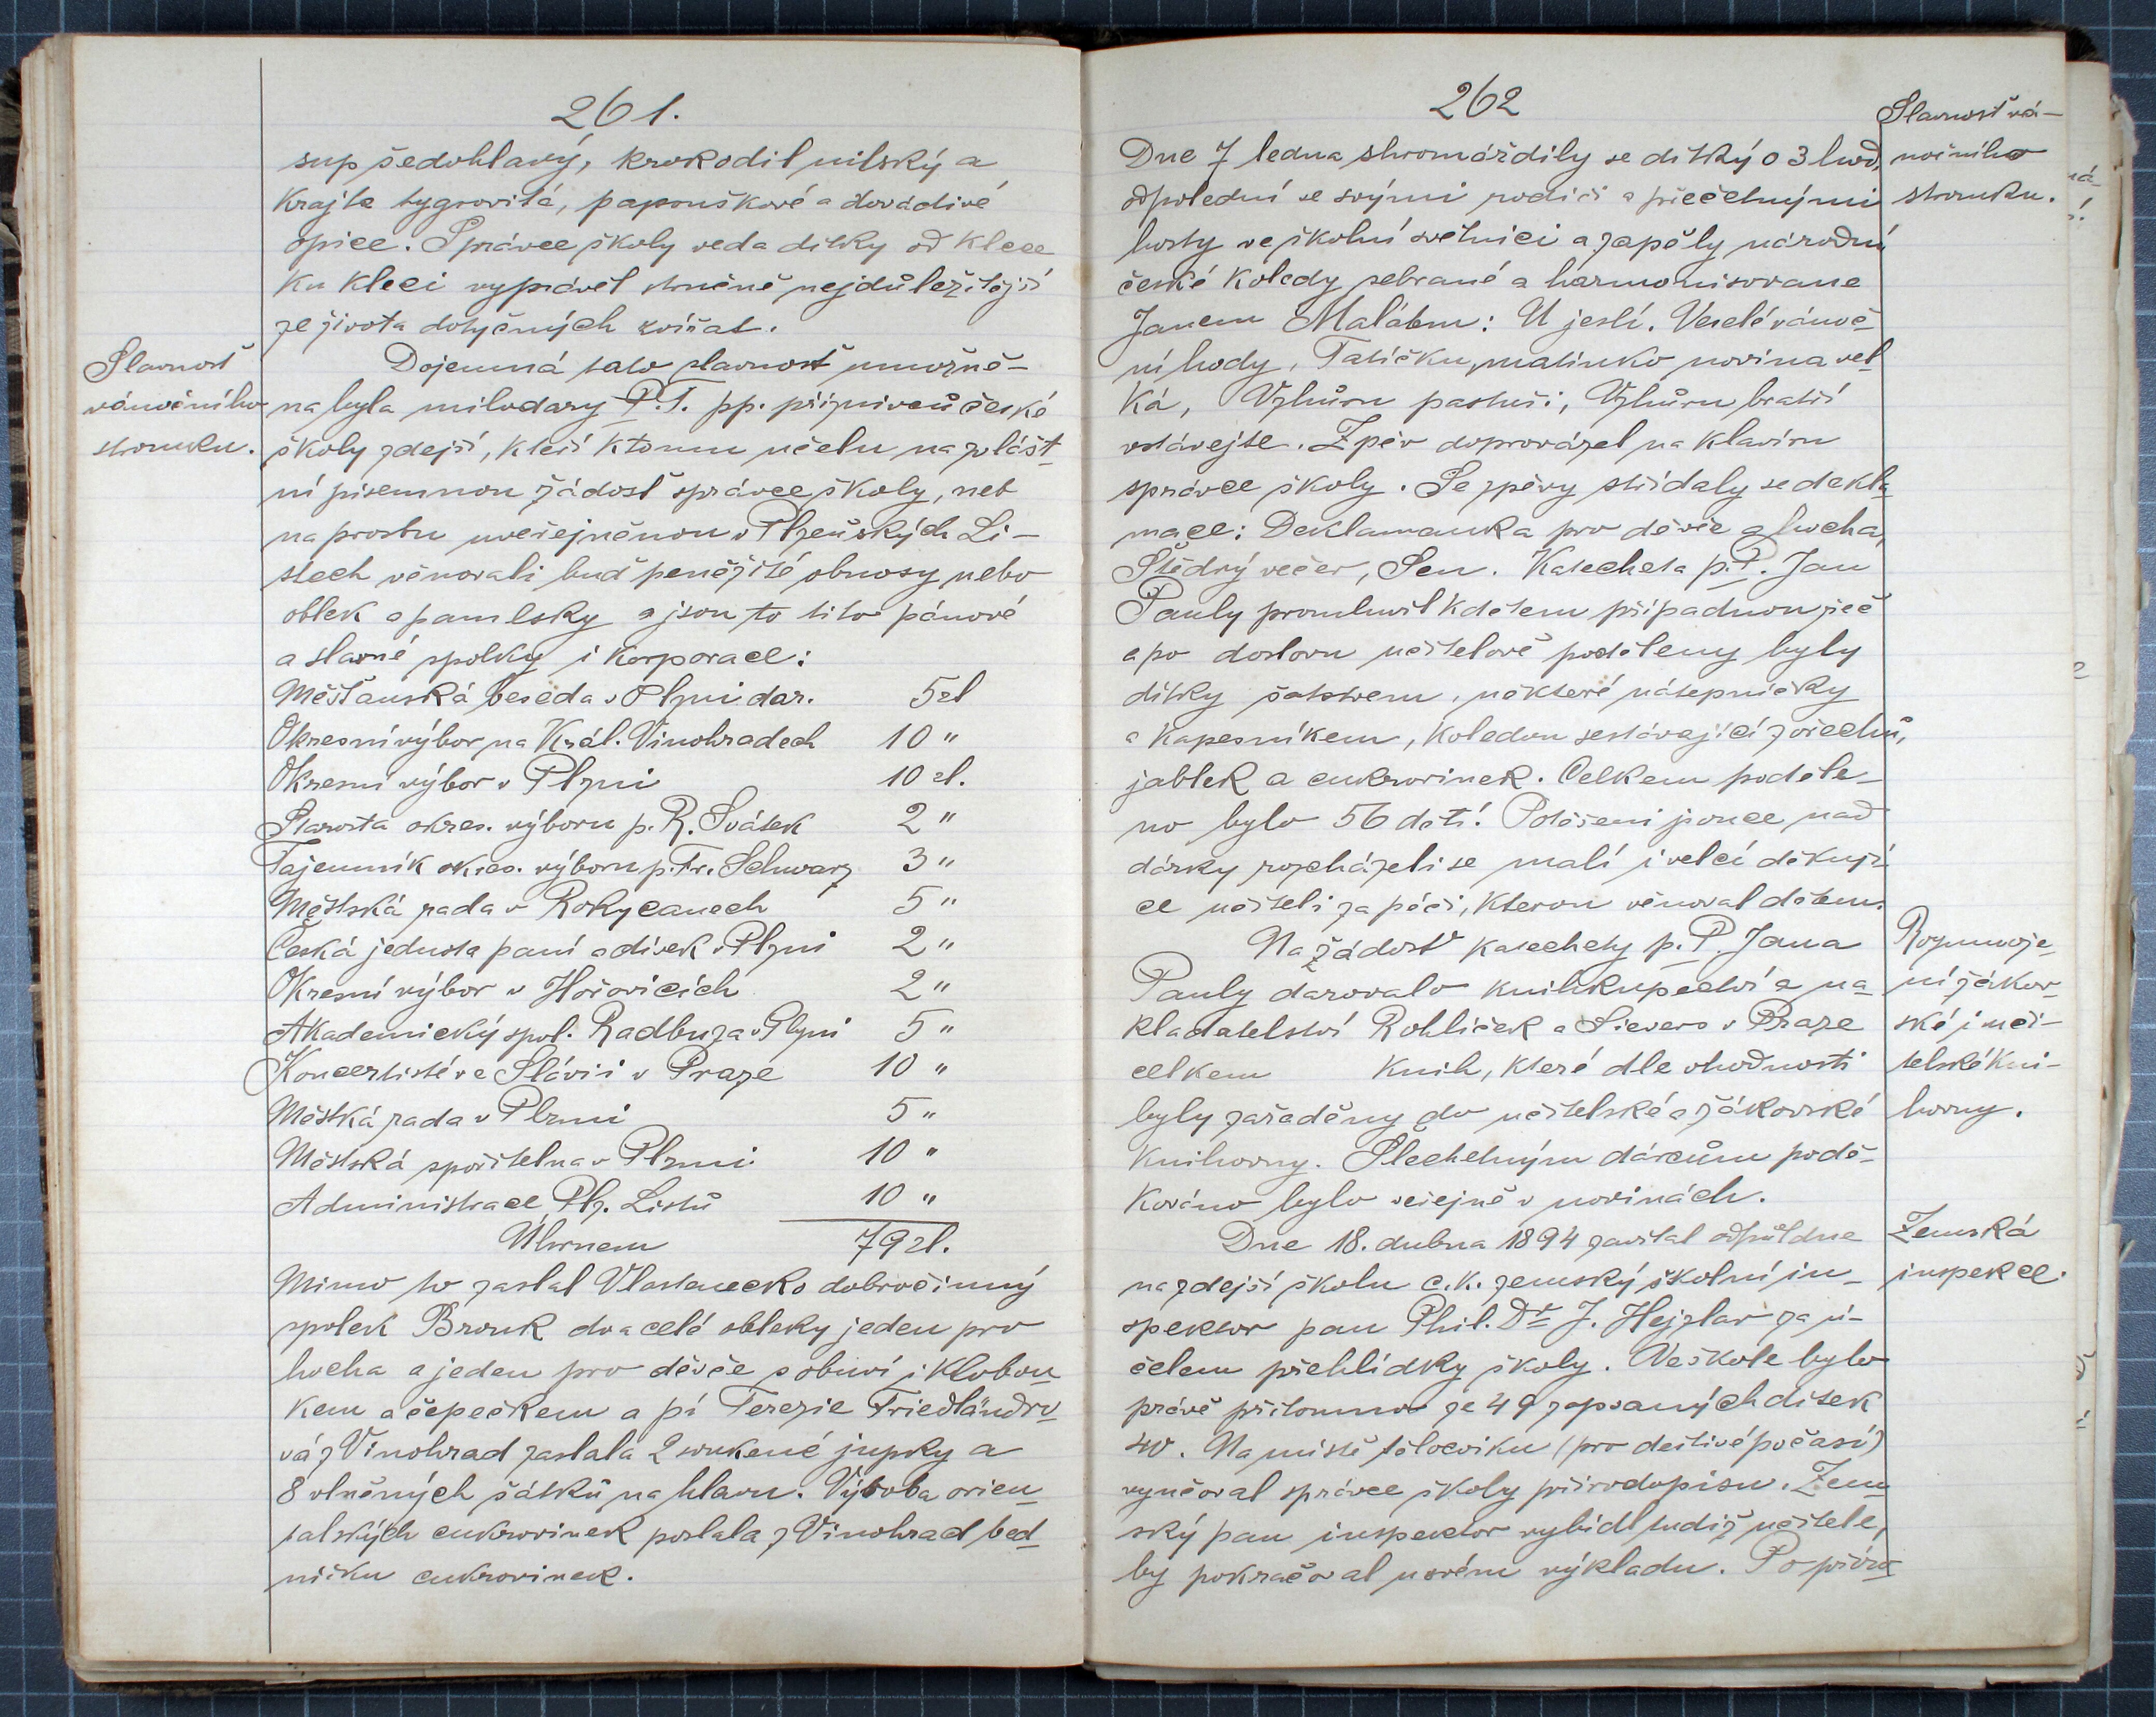 261.
sup šedohlavý, krokodil nilský a
krajta tygrovitá, papouškové a dovádivé
opice. Správce školy veda dítky od klece
ku kleci vyprávěl stručně nejdůležitější
ze života dotyčných zvířat.
Slavnosť
vánočního
stromku.
Dojemná tato slavnosť umožně-
na byla milodary P.T. pp. příznivců české
školy zdejší, kteří k tomu účelu na zvlášt-
ní písemnou žádosť správce školy, neb
na prosbu uveřejněnou v Plzeňských Li-
stech věnovali buď peněžité obnosy nebo
oblek a pamlsky a jsou to tito pánové
a slavné spolky i korporace:
Měšťanská beseda v Plzni dar. 5 zl
Okresní výbor na Král. Vinohradech 10 "
Okresní výbor v Plzni 10 zl.
Starosta okres. výboru p. R. Svátek 2 "
Tajemník okres. výboru p. Fr. Schwarz 3 "
Městská rada v Rokycanech 5 "
Česká jednota paní a dívek v Plzni 2 "
Okresní výbor v Hořovicích 2 "
Akademický spol. Radbuza v Plzni 5 "
Koncertisté ve Slávii v Praze 10 "
Městká rada v Plzni 5 "
Městská spořitelna v Plzni 10 "
Administrace Plz. Listů 10 "
Úhrnem 79 zl.
Mimo to zaslal Vlastenecko dobročinný
spolek Brouk dva celé obleky jeden pro
hocha a jeden pro děvče s obuví i klobou-
kem a čepečkem a pí Terezie Friedländro-
vá z Vinohrad zaslala 2 sukené jupky a
8 vlněných šátků na hlavu. Výroba orien-
talských cukrovinek poslala z Vinohrad bed-
ničku cukrovinek.
262
Slavnosť vá-
nočního
stromku.
Dne 7 ledna shromáždily se dítky o 3 hod.
odpolední se svými rodiči a přečetnými
hosty ve školní světnici a zapěly národní
české koledy sebrané a harmonisované
Janem Malátem: U jeslí. Veselé vánoč-
ní hody, Tatíčku, matinko novina vel-
ká, Vzhůru pastuši, Vzhůru bratří
vstávejte. Zpěv doprovázel na klavíru
správce školy. Se zpěvy střídaly se dekla-
mace: Deklamanka pro děvče a hocha,
Štědrý večer, Sen. Katecheta p. P. Jan
Pauly promluvil k dětem případnou řeč
a po doslovu učitelově poděleny byly
dítky šatstvem, některé nátepničky
a kapesníkem, koledou sestávající z ořechů,
jablek a cukrovinek. Celkem poděle-
no bylo 56 dětí. Potěšeni jsouce nad
dárky rozcházeli se malí i velcí děkují-
ce učiteli za péči, kterou věnoval dětem.
Rozmnože-
ní žákov-
ské i uči-
telské kni-
hovny.
Na žádosť katechety p. P. Jana
Pauly darovalo knihkupectví a na-
kladatelství Rohlíček a Sievers v Praze
celkem knih, které dle vhodnosti
byly zařaděny do učitelské a žákovské
knihovny. Šlechetným dárcům podě-
kováno bylo veřejně v novinách.
Zemská
inspekce.
Dne 18. dubna 1894 zavítal odpůldne
na zdejší školu c. k. zemský školní in-
spektor pan Phil. Dr J. Hejzlar za ú-
čelem přehlídky školy. Ve škole bylo
právě přítomno ze 49 zapsaných dítek
40. Na místě tělocviku (pro deštivé počasí)
vyučoval správce školy přírodopisu. Zem-
ský pan inspektor vybídl tudíž učitele,
by pokračoval u svém výkladu. Po přívě-